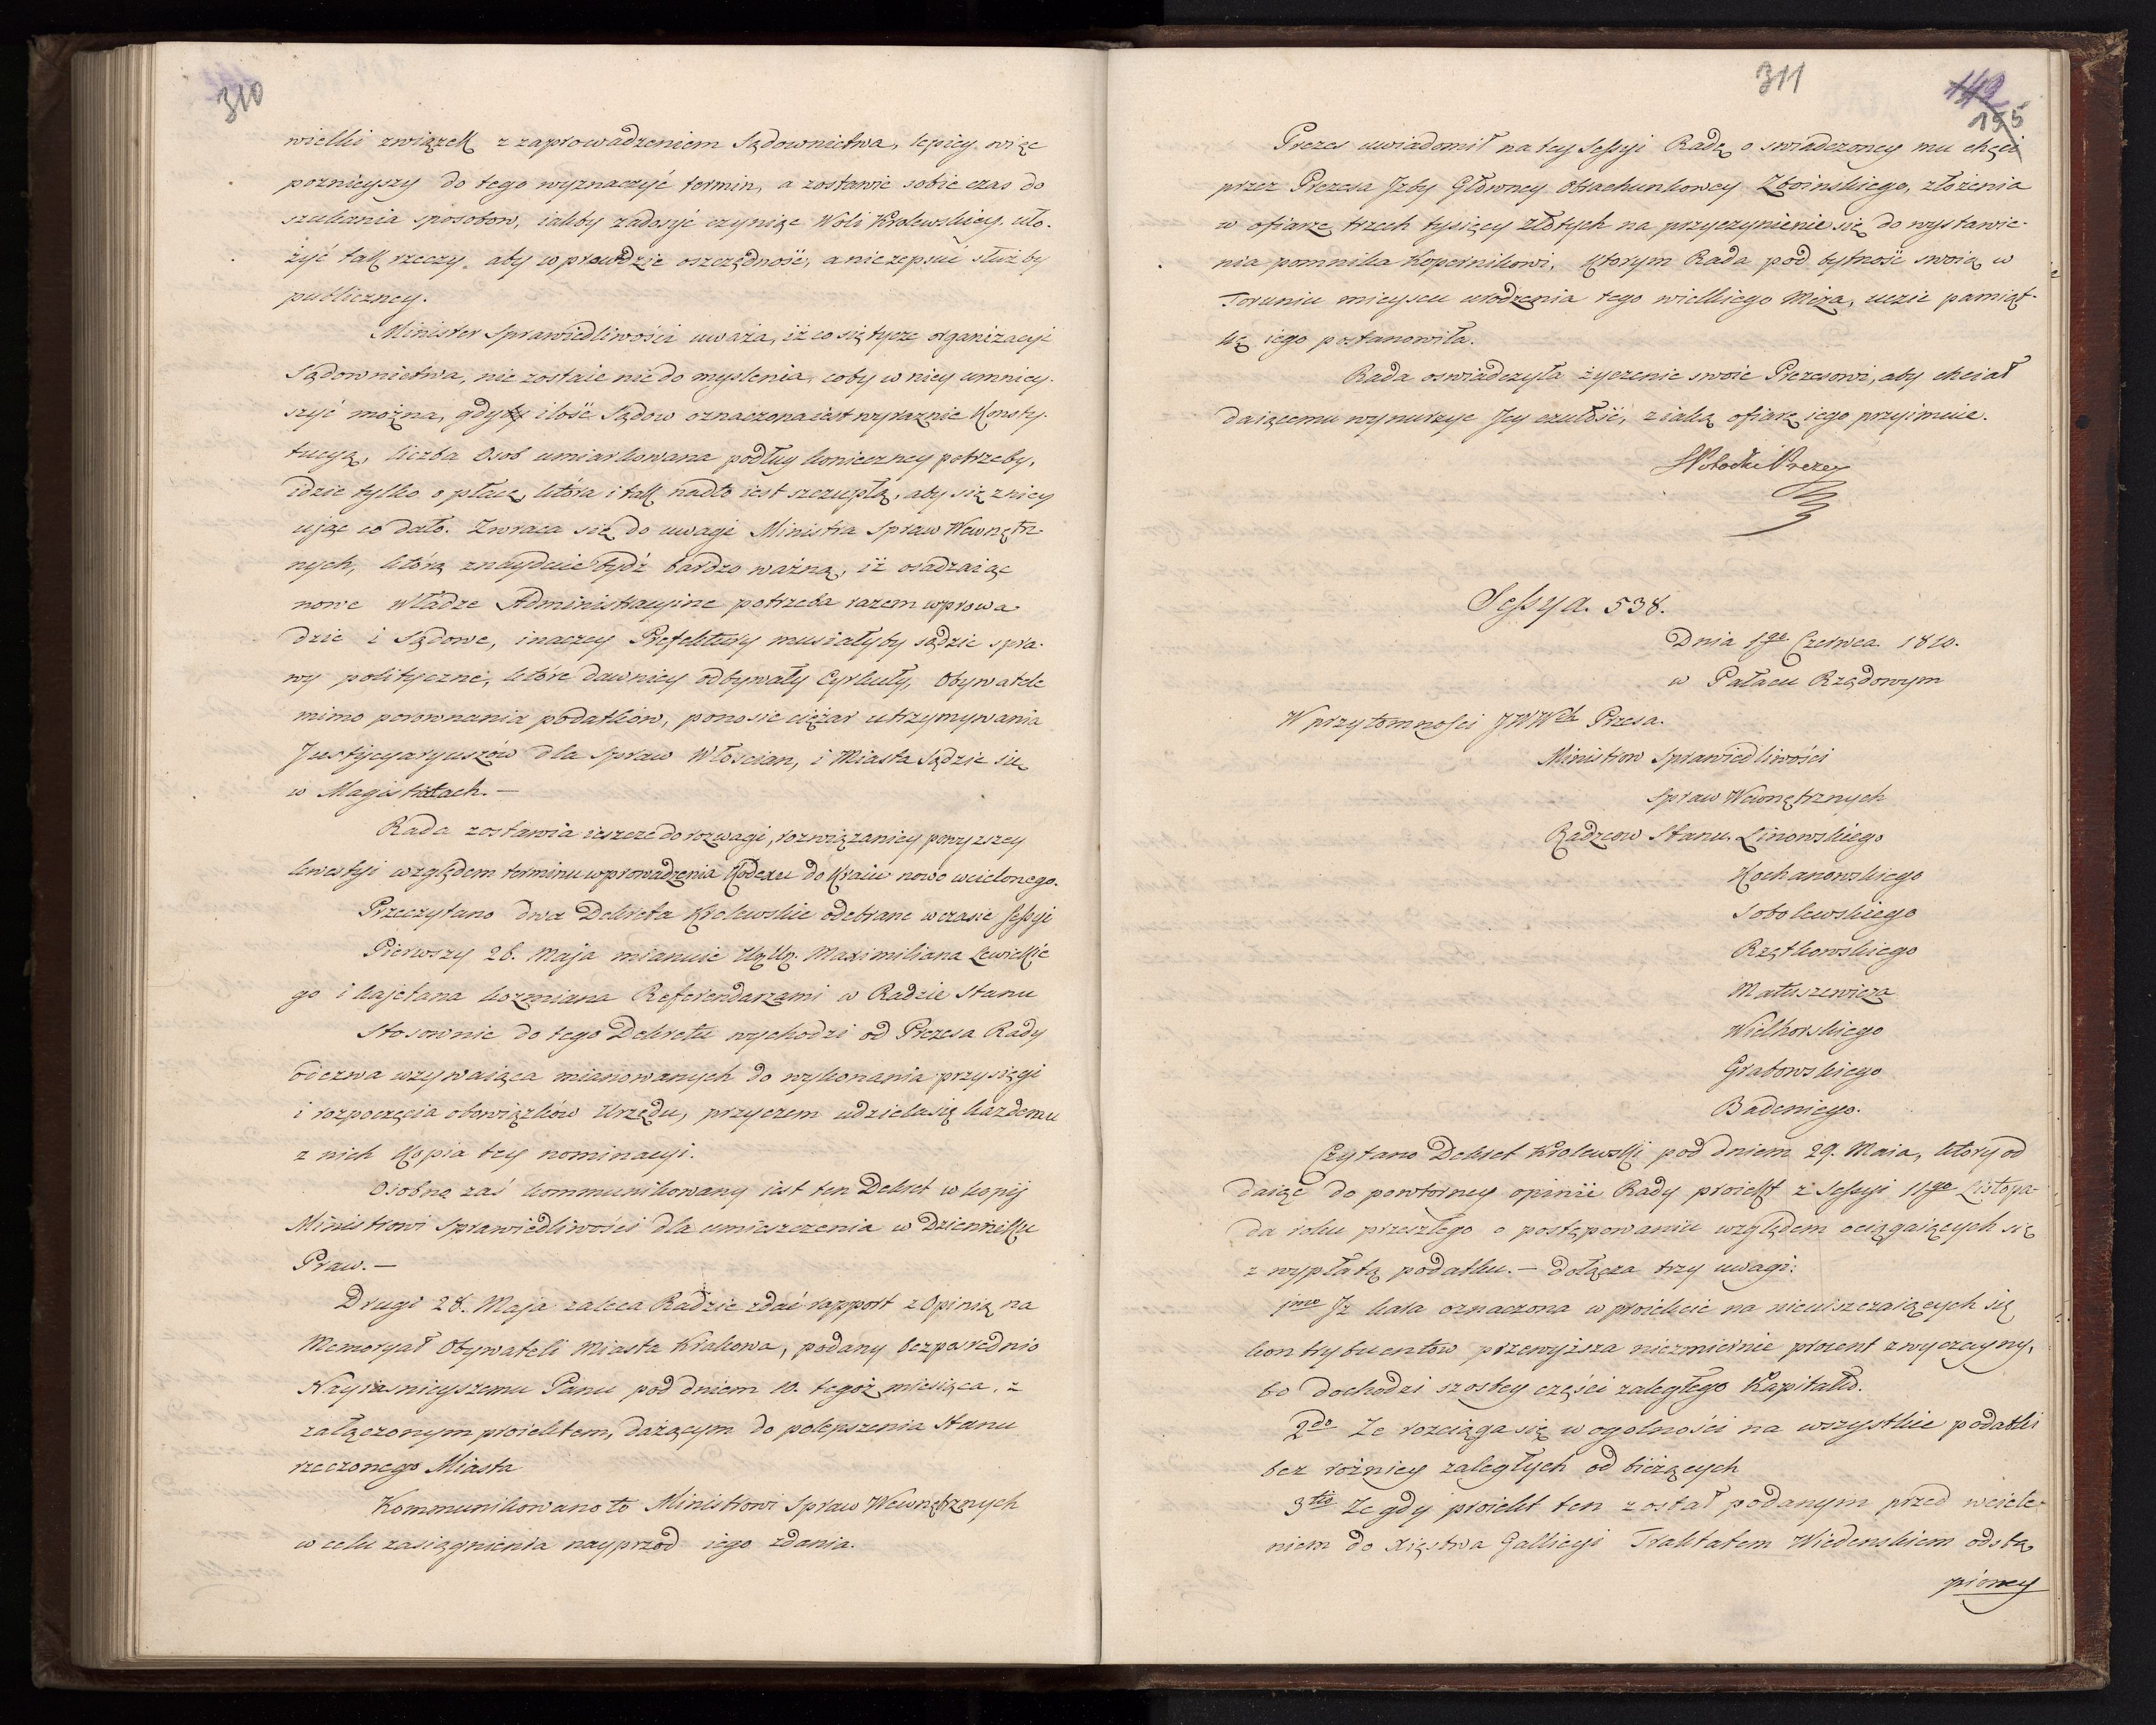 310
wielki związek z zaprowadzeniem Sądownictwa, lepiey więc
poznieyszy do tego wyznaczyć termin, a zostawić sobie czas do
szukania sposobow, iakby zadosyć czyniąc Woli Krolewskiey, uło-
żyć tak rzeczy, aby wprowadzić oszczędność, a nie zepsuć służby
publiczney.
Minister Sprawiedliwości uważa, iż co się tycze organizacyi
Sądownictwa, nie zostaie nic do myslenia, coby w niey umniey-
szyć można, gdyż ilość Sądow oznaczona iest wyraznie Konsty-
tucyą, liczba Osob umiarkowana podług konieczney potrzeby,
idzie tylko o płacę, która i tak nadto iest szczupłą, aby się z niey
ująć co dało. Zwraca się do uwagi Ministra Spraw Wewnętrz-
nych, którą znayduie bydź bardzo ważną, iż osadzaiąc
nowe Władze Administracyine potrzeba razem wprowa-
dzić i Sądowe, inaczey Prefektury musiałyby sądzić spra-
wy polityczne, które dawniey odbywały Cyrkuły, Obywatele
mimo porownania podatków, ponosić ciężar utrzymywania
Justycyaryuszów dla Spraw Włoscian, i Miasta Sądzić się
w Magistratach. —
Rada zostawia ieszcze do rozwagi, rozwiązaniey powyzszey
kwestyi względem terminu wprowadzenia Kodexu do Kraiu nowo wcielonego.
Przeczytano dwa Dekreta Krolewskie odebrane w czasie Sessyi
Pierwszy 28. Maja mianuie Maximiliana Lewickie
go i Kajetana Kozmiana Referendarzami w Radzie Stanu
Stosownie do tego Dekretu wychodzi od Prezesa Rady
odezwa wzywaiąca mianowanych do wykonania przysięgi
i rozpoczęcia obowiązków Urzędu, przyczem udziela się kazdemu
z nich Kopia tey nominacyi.
Osobno zaś kommunikowany iest ten Dekret w kopij
Ministrowi Sprawiedliwości dla umieszczenia w Dzienniku
Praw. —
Drugi 28. Maja zaleca Radzie zdać rapport z Opinią na
Memoryał Obywateli Miasta Krakowa, podany bezposrednio
Nayiasnieyszemu Panu pod dniem 10. tegoż miesiąca, z
załączonym proiektem, dążącym do polepszenia Stanu
rzeczonego Miasta
Kommunikowano to Ministrowi Spraw Wewnętrznych
w celu zasiągnienia nayprzod iego zdania.
311
142
155
Prezes uwiadomił na tey Sessyi Radę o swiadczoney mu chęci
przez Prezesa Jzby Głowney Obrachunkowey Zboińskiego, złożenia
w ofiarze trzech tysięcy Złotych na przyczynienie się do wystawie-
nia pomnika Kopernikowi, ktorym Rada pod bytność swoią w
Toruniu mieyscu urodzenia tego wielkiego Męża, uczcić pamiąt-
kę iego postanowiła.
Rada oswiadczyła życzenie swoie Prezesowi, aby chciał
daiącemu wynurzyć Jey czułość, z iaką ofiarę iego przyimuie.
Sessya. 538.
Dnia 1go Czerwca. 1810.
w Pałacu Rządowym
W przytomności JWWch Przsa.
Ministrow Sprawiedliwości
Spraw Wewnętrznych
Radzcow Stanu. Linowskiego
Kochanowskiego
Sobolewskiego
Rzętkowskiego
Matuszewicza
Wielhorskiego
Grabowskiego
Badeniego.
Czytano Dekret Krolewski pod dniem 29. Maia, ktory od
daiąc do powtorney opinii Rady proiekt z Sessyi 11go Listopa-
da roku przeszłego o postępowaniu względem ociągaiących się
z wypłatą podatku. — dołącza trzy uwagi:
1mo Jż kara oznaczona w proiekcie na nieuiszczaiących się
kontrybuentow przewyższa niezmiernie procent zwyczayny,
bo dochodzi szostey części zaległego Kapitału.
2do Ze rozciąga się w ogolności na wszystkie podatki
bez rożnicy zaległych od bieżących
3tio Ze gdy proiekt ten został podanym przed wciele-
niem do Xięstwa Gallicyi Traktatem Wiedenskiem odstą
pioney